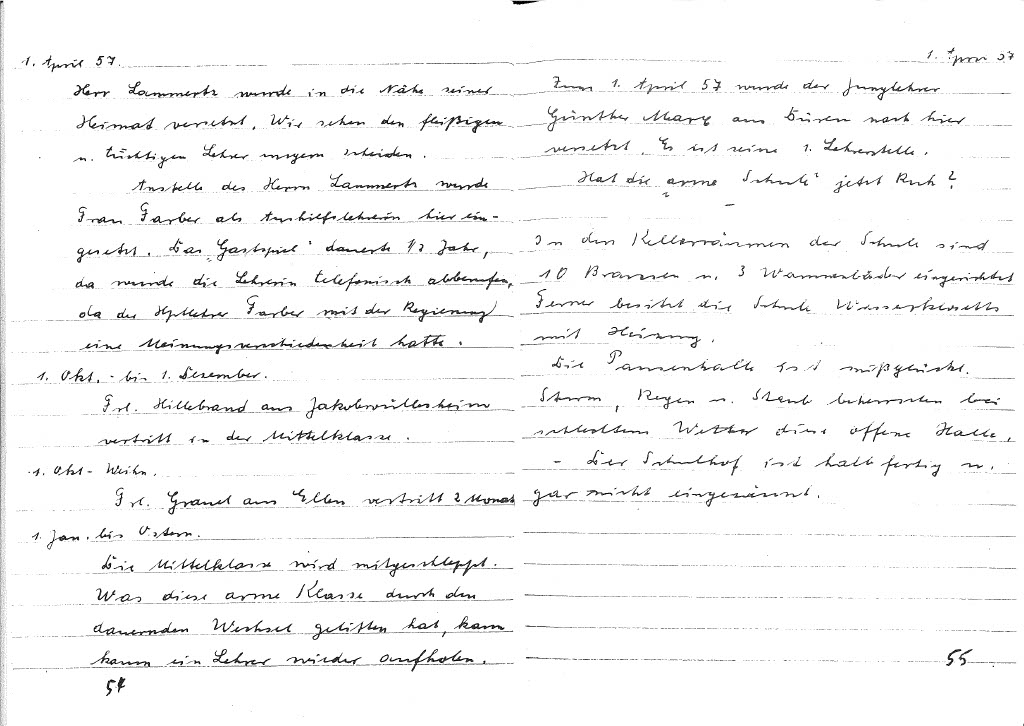 1. April 57.
Herr Lammertz wurde in die Nähe seiner
Heimat versetzt. Wir sehen den fleißigen
u. tüchtigen Lehrer ungern scheiden.
Anstelle des Herrn Lammertz wurde
Frau Farber als Aushilfslehrerin hier ein-
gesetzt. Das „Gastspiel" dauerte 1/2 Jahr,
da wurde die Lehrerin telefonisch abberufen,
da der Hptlehrer Farber mit der Regierung
eine Meinungsverschiedenheit hatte.
1. Okt. - bis 1. Dezember.
Frl. Hillebrand aus Jakobwüllesheim
vertritt in der Mittelklasse.
1. Okt - Weihn.
Frl. aus Ellen vertritt 2 Monat
1. Jan. bis Ostern.
Die Mittelklasse wird mitgeschleppt.
Was diese arme Klasse durch den
dauernden Wechsel gelitten hat, kann
kaum ein Lehrer wieder aufholen.
54
1. April 57
Zum 1. April 57 wurde der Junglehrer
Günther aus Düren nach hier
versetzt. Es ist seine 1. Lehrerstelle.
Hat die „arme Schule" jetzt Ruh?
In den Kellerräumen der Schule sind
10 Brausen u. 3 Wannenbäder eingerichtet
Ferner besitzt die Schule Wasserklosetts
mit Heizung.
Die Pausenhalle ist mißglückt.
Sturm, Regen u. Staub beherrschen bei
schlechtem Wetter diese offene Halle.
- Der Schulhof ist halb fertig u.
gar nicht eingezäunt.
55